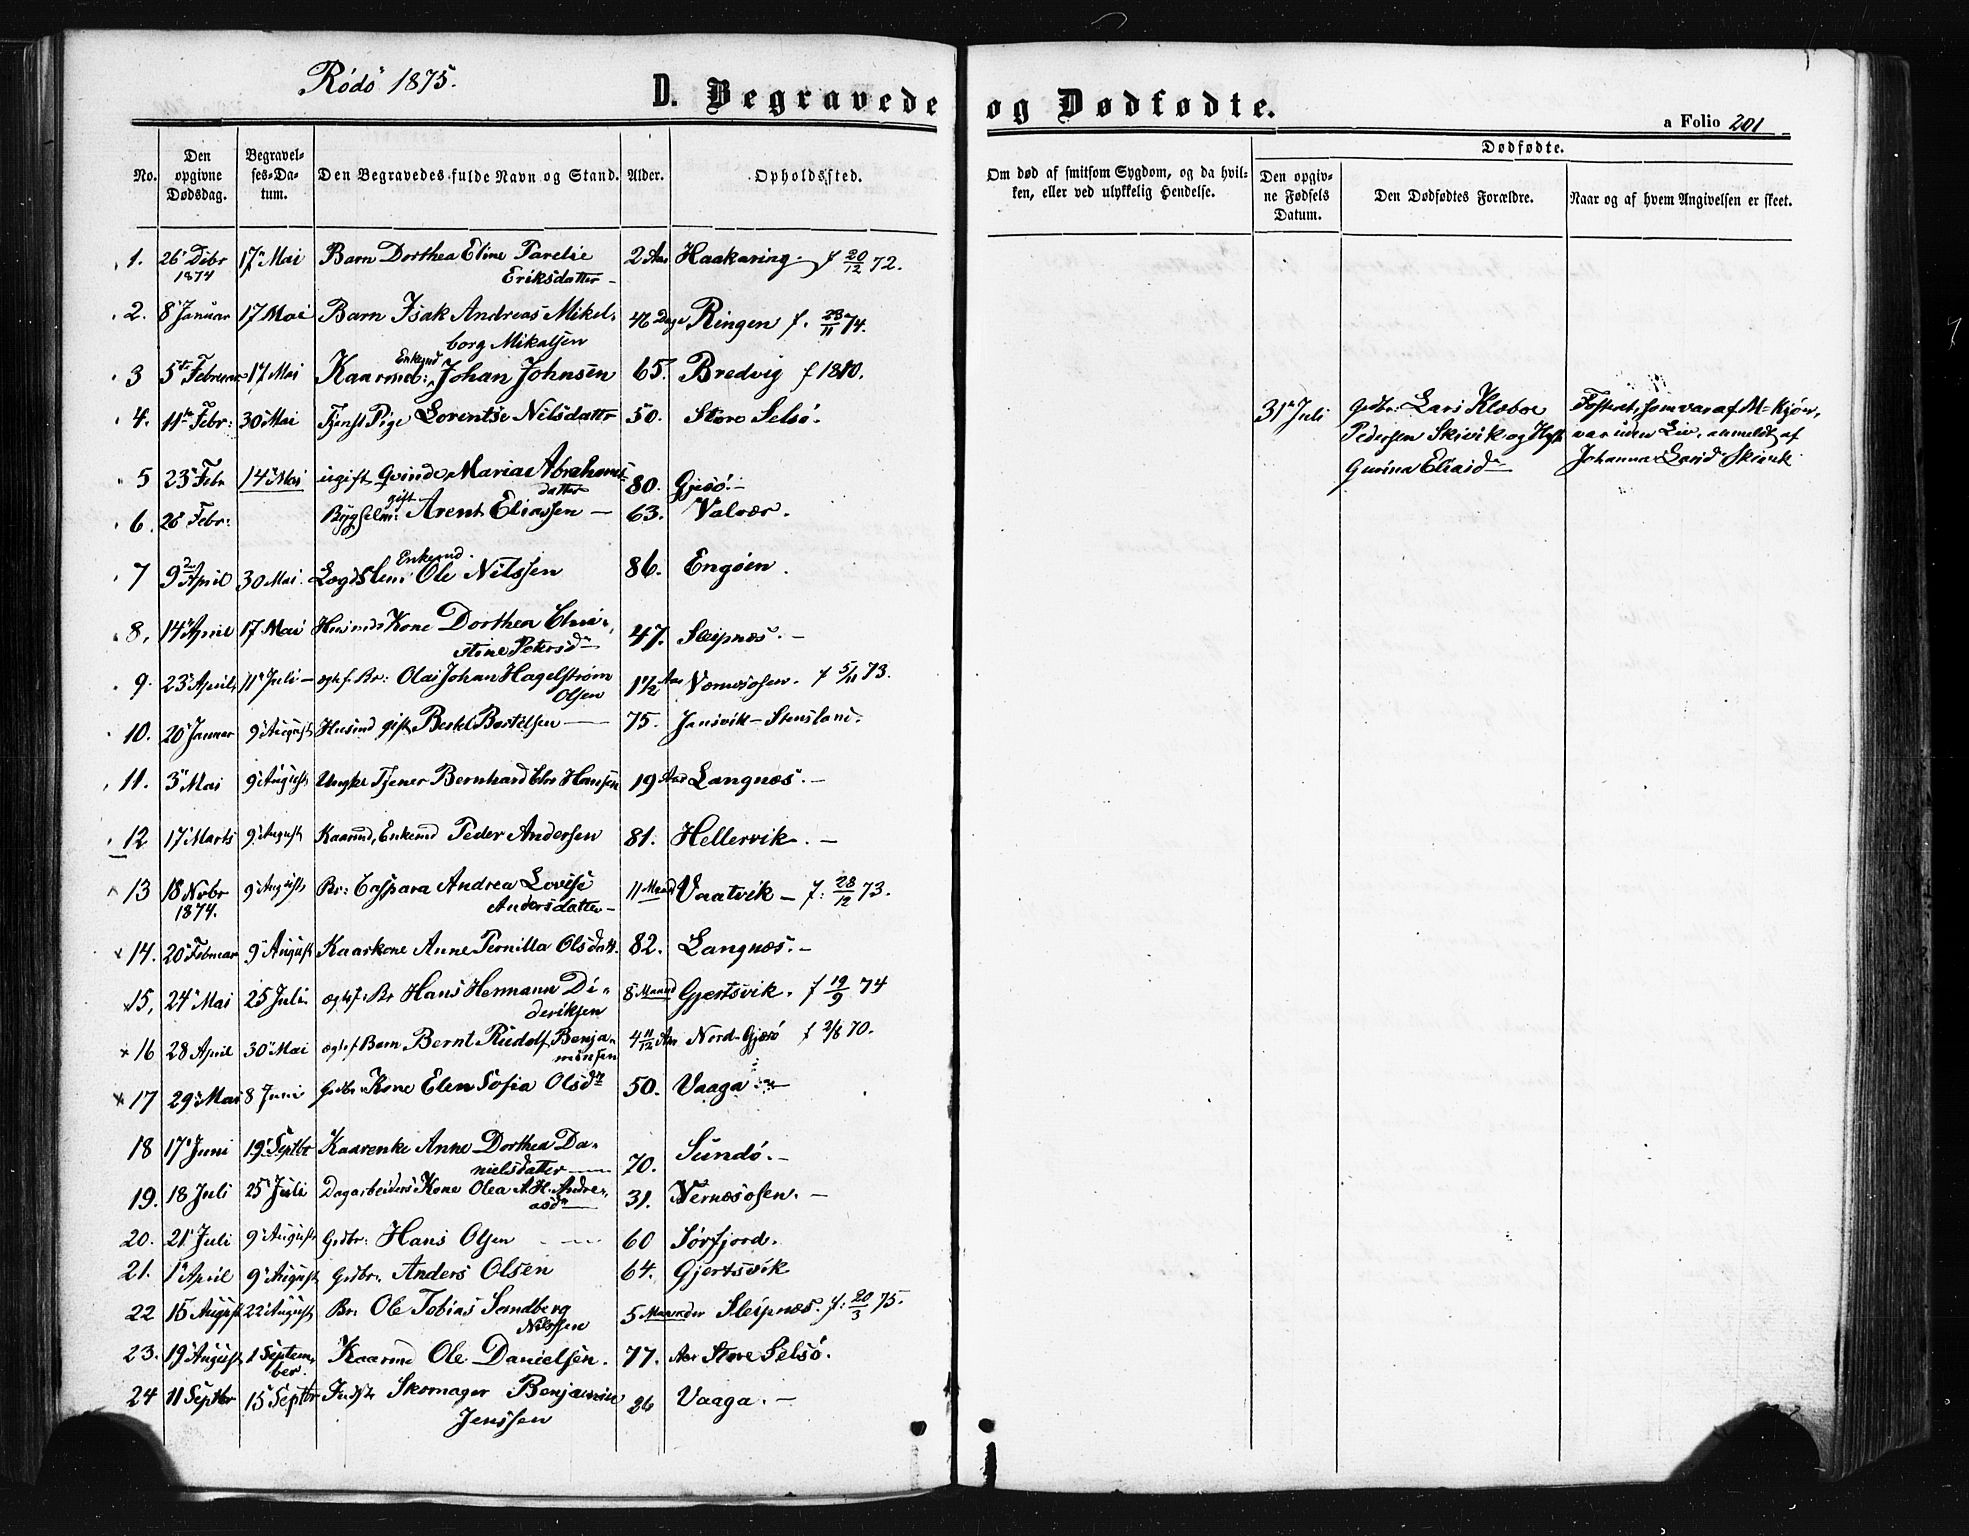 Rödö 1875.
D. Begravede og Dødfødte.
a Folio 201
No.
Den opgivne Dødsdag.
Begravel-ses-Da-tum.
Den Begravedes fulde Navn og Stand.
Alder.
Opholdssted.
Om død af smitsom Sygdom, og da hvil-ken, eller ved ulykkelig Hendelse.
Dødfødte.
Den opgiv-ne Fødsels Datum.
Den Dødfødtes Forældre.
Naar og af hvem Angivelsen er skeet.
1. 26 Debr 17 Mai Barn Dorthea Eline Parelie 2 Aar Haakaring. f 20/12 72.
1874 Eriksdatter
2. 8 Januar 17 Mai Barn Isak Andreas Mikel- 46 Dage Ringen f. 23/11 74.
borg Mikalsen
Enkemd
3 5te Februar 17 Mai Kaarmd: Johan Johnsen 65. Bredvig f 1810.
4. 11te Febr: 30 Mai Tjenst Pige Lorentse Nilsdattr 50. Store Selsö.
31 Juli Gdbr: Lars Klæboe Fosteret, som var af M-Kjøn,
Pedersen Skivik og Hst var uden Liv, anmeldt af
Gurina Eliasd Johanna Larsd Skivik
5 23 Febr 14 Mai ugift Qvinde Maria Abrahams- 80. Gjesö.
datter
gift
6. 26 Febr: Bygselm: Arent Eliassen 63. Valvær.
Enkemd.
7 9de April 30 Mai Lægdslem Ole Nilssen 86. Engöen.
8. 14 April 17 Mai Husmds Kone Dorthea Chri- 47. Sleipnæs.
stine Petersd
9. 23 April 11 Juli ægtef. Br: Olai Johan Hagelstrøm 1 1/2 Aar Værnæsosen. f 5/11 73.
Olsen
10. 20 Januar 9 August Husmd gift Bertel Bertelsen 75. Jansvik-Stensland.
11. 3 Mai 9 August Ungke Tjener Bernhard Chr Hansen 19 Aar Langnæs.
12 17 Marts 9 August Kaarmd, Enkemd Peder Andersen 81. Hellervik.
13 18 Nvbr 9 August Br: Caspara Andrea Lovise 11 Maand Vaatvik f: 28/12 73.
1874. Andersdatter
14. 20 Februar 9 August Kaarkone Anne Pernilla Olsdatt. 82. Langnæs.
15, 24 Mai 25 Juli ægtef. Br Hans Hermann Di- 8 Maand Gjertsvik. f 19/9 74
deriksen
16 28 April 30 Mai ægtef Barn Bernt Rudolf Benja- 4 11/12 Aar Nord-Gjesö f 2/6 70.
minsen
17 29 Mai 8 Juni Gdbr Kone Elen Sofia Olsdr 50. Vaaga.
18 17 Juni 19 Septbr Kaarenke Anne Dorthea Da- 70. Sundö.
nielsdatter
19. 18 Juli 25 Juli Dagarbeiders Kone Olea A.H. Andre- 31. Vernæsosen.
asdr
20. 21 Juli 9 August Gdbr: Hans Olsen 60 Sørfjord.
21. 1 April 9 August Gdbr: Anders Olsen 64. Gjertsvik
22 15 August 22 August Br: Ole Tobias Sandberg 5 Maaneder Sleipnæs. f: 20/3 75.
Nilssen
23. 19 August 1 Septem- Kaarmd Ole Danielsen. 77. Aar Store Selsö.
ber.
24 11 Septbr 15 Septbr Indst Skomager Benjamin 26 Vaaga.
Jenssen